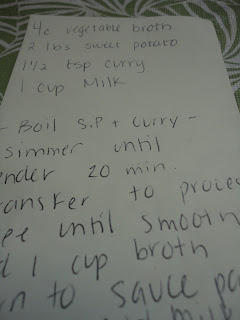 4c vegetable broth
2 lbs sweet potato
1 1/2 tsp curry
1 cup Milk
- Boil S.P + Curry -
simmer until
ender 20 min.
ansfer to proces
ee until smooth
d 1 cup broth
rn to sauce pa
milk